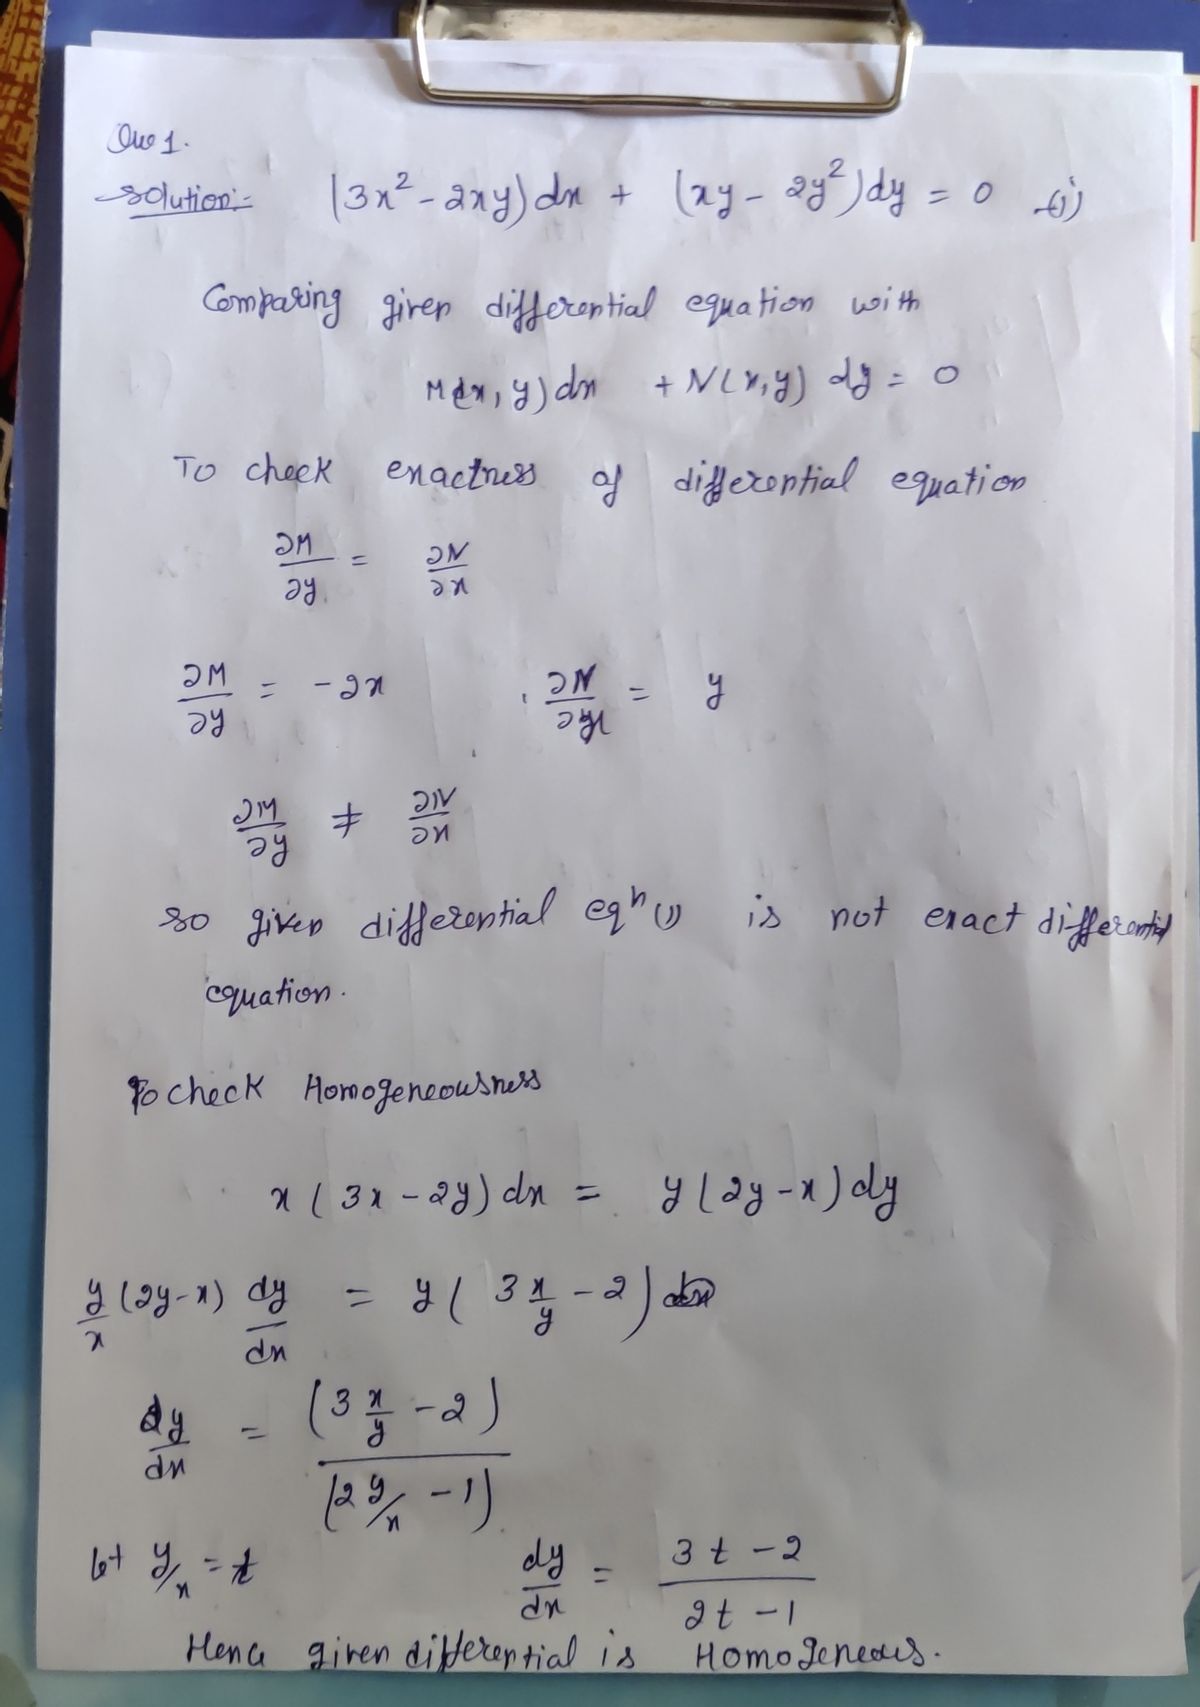 Que 1.
Solution:- (3x² - 2xy) dx + (xy - 2y²) dy = 0 -(i)
Comparing given differential equation with
M(x, y) dx + N(x, y) dy = 0
To check exactness of differential equation
∂M/∂y = ∂N/∂x
∂M/∂y = -2x , ∂N/∂x = y
∂M/∂y ≠ ∂N/∂x
so given differential eqⁿ (1) is not exact differential
equation.
To check Homogeneousness
x (3x - 2y) dx = y (2y - x) dy
y/x (2y - x) dy/dx = y (3 x/y - 2)
dy/dx = (3 x/y - 2) / (2 y/x - 1)
let y/x = t dy/dx = 3t - 2 / 2t - 1
Hence given differential is Homogeneous.